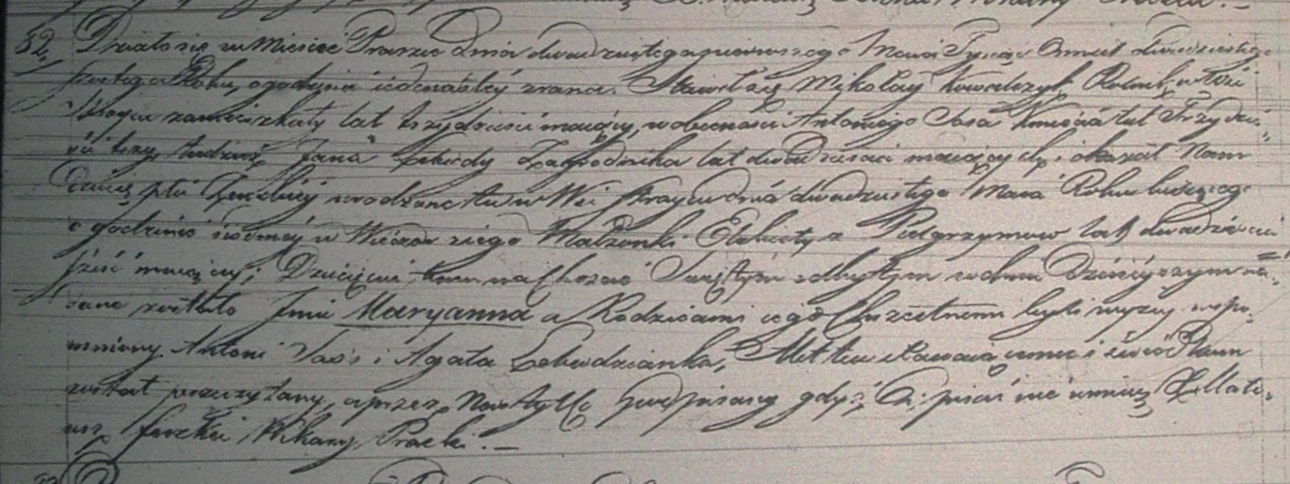 32. Działo się w Mieście Praszce Dnia dwudziestego pierwszego Maia Tysiąc Ośmset dwudziestego
szóstego Roku, o godzinie iedenastey zrana. Stawił się Mikołay Kowalczyk, Rolnik w Wsi
zamieszkały lat trzydzieści maiący, w obecności Antoniego Jasia Kmiecia lat Trzydzie-
ści trzy, tudzież Jana Zagrodnika lat dwadzieścia maiących, i okazał Nam
Dziecię płci Żeńskiey urodzone tu w Wsi dnia dwudziestego Maia Roku bieżącego
o godzinie siódmey w Wieczór z iego Małżonki Elżbiety z Pielgrzymów lat dwadzieścia
sześć maiącey; Dziecięciu temu na Chrzcie Świętym odbytym w dniu Dzisieyszym na-
dane zostało Imie Maryanna a Rodzicami iego Chrzestnemi byli wyżey wspo-
mniony Antoni Jaś i Agata Lebiedzianka, Akt ten stawaiącemu i świadkom
został przeczytany, a przez Nas tylko podpisany gdyż Ci pisać nie umieią X Mate-
usz Wikary Praszki. —